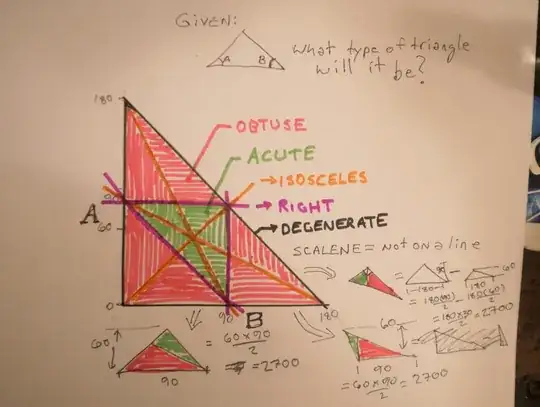 GIVEN:
A B
What type of triangle
will it be?
180
OBTUSE
ACUTE
→ISOSCELES
→RIGHT
→DEGENERATE
A
60
SCALENE = Not on a line
0
90
B
180
= 180(90)/2 - 180(60)/2
= 180×30/2 = 2700
60
90
= 60×90/2
= 2700
60
90
= 60×90/2 = 2700